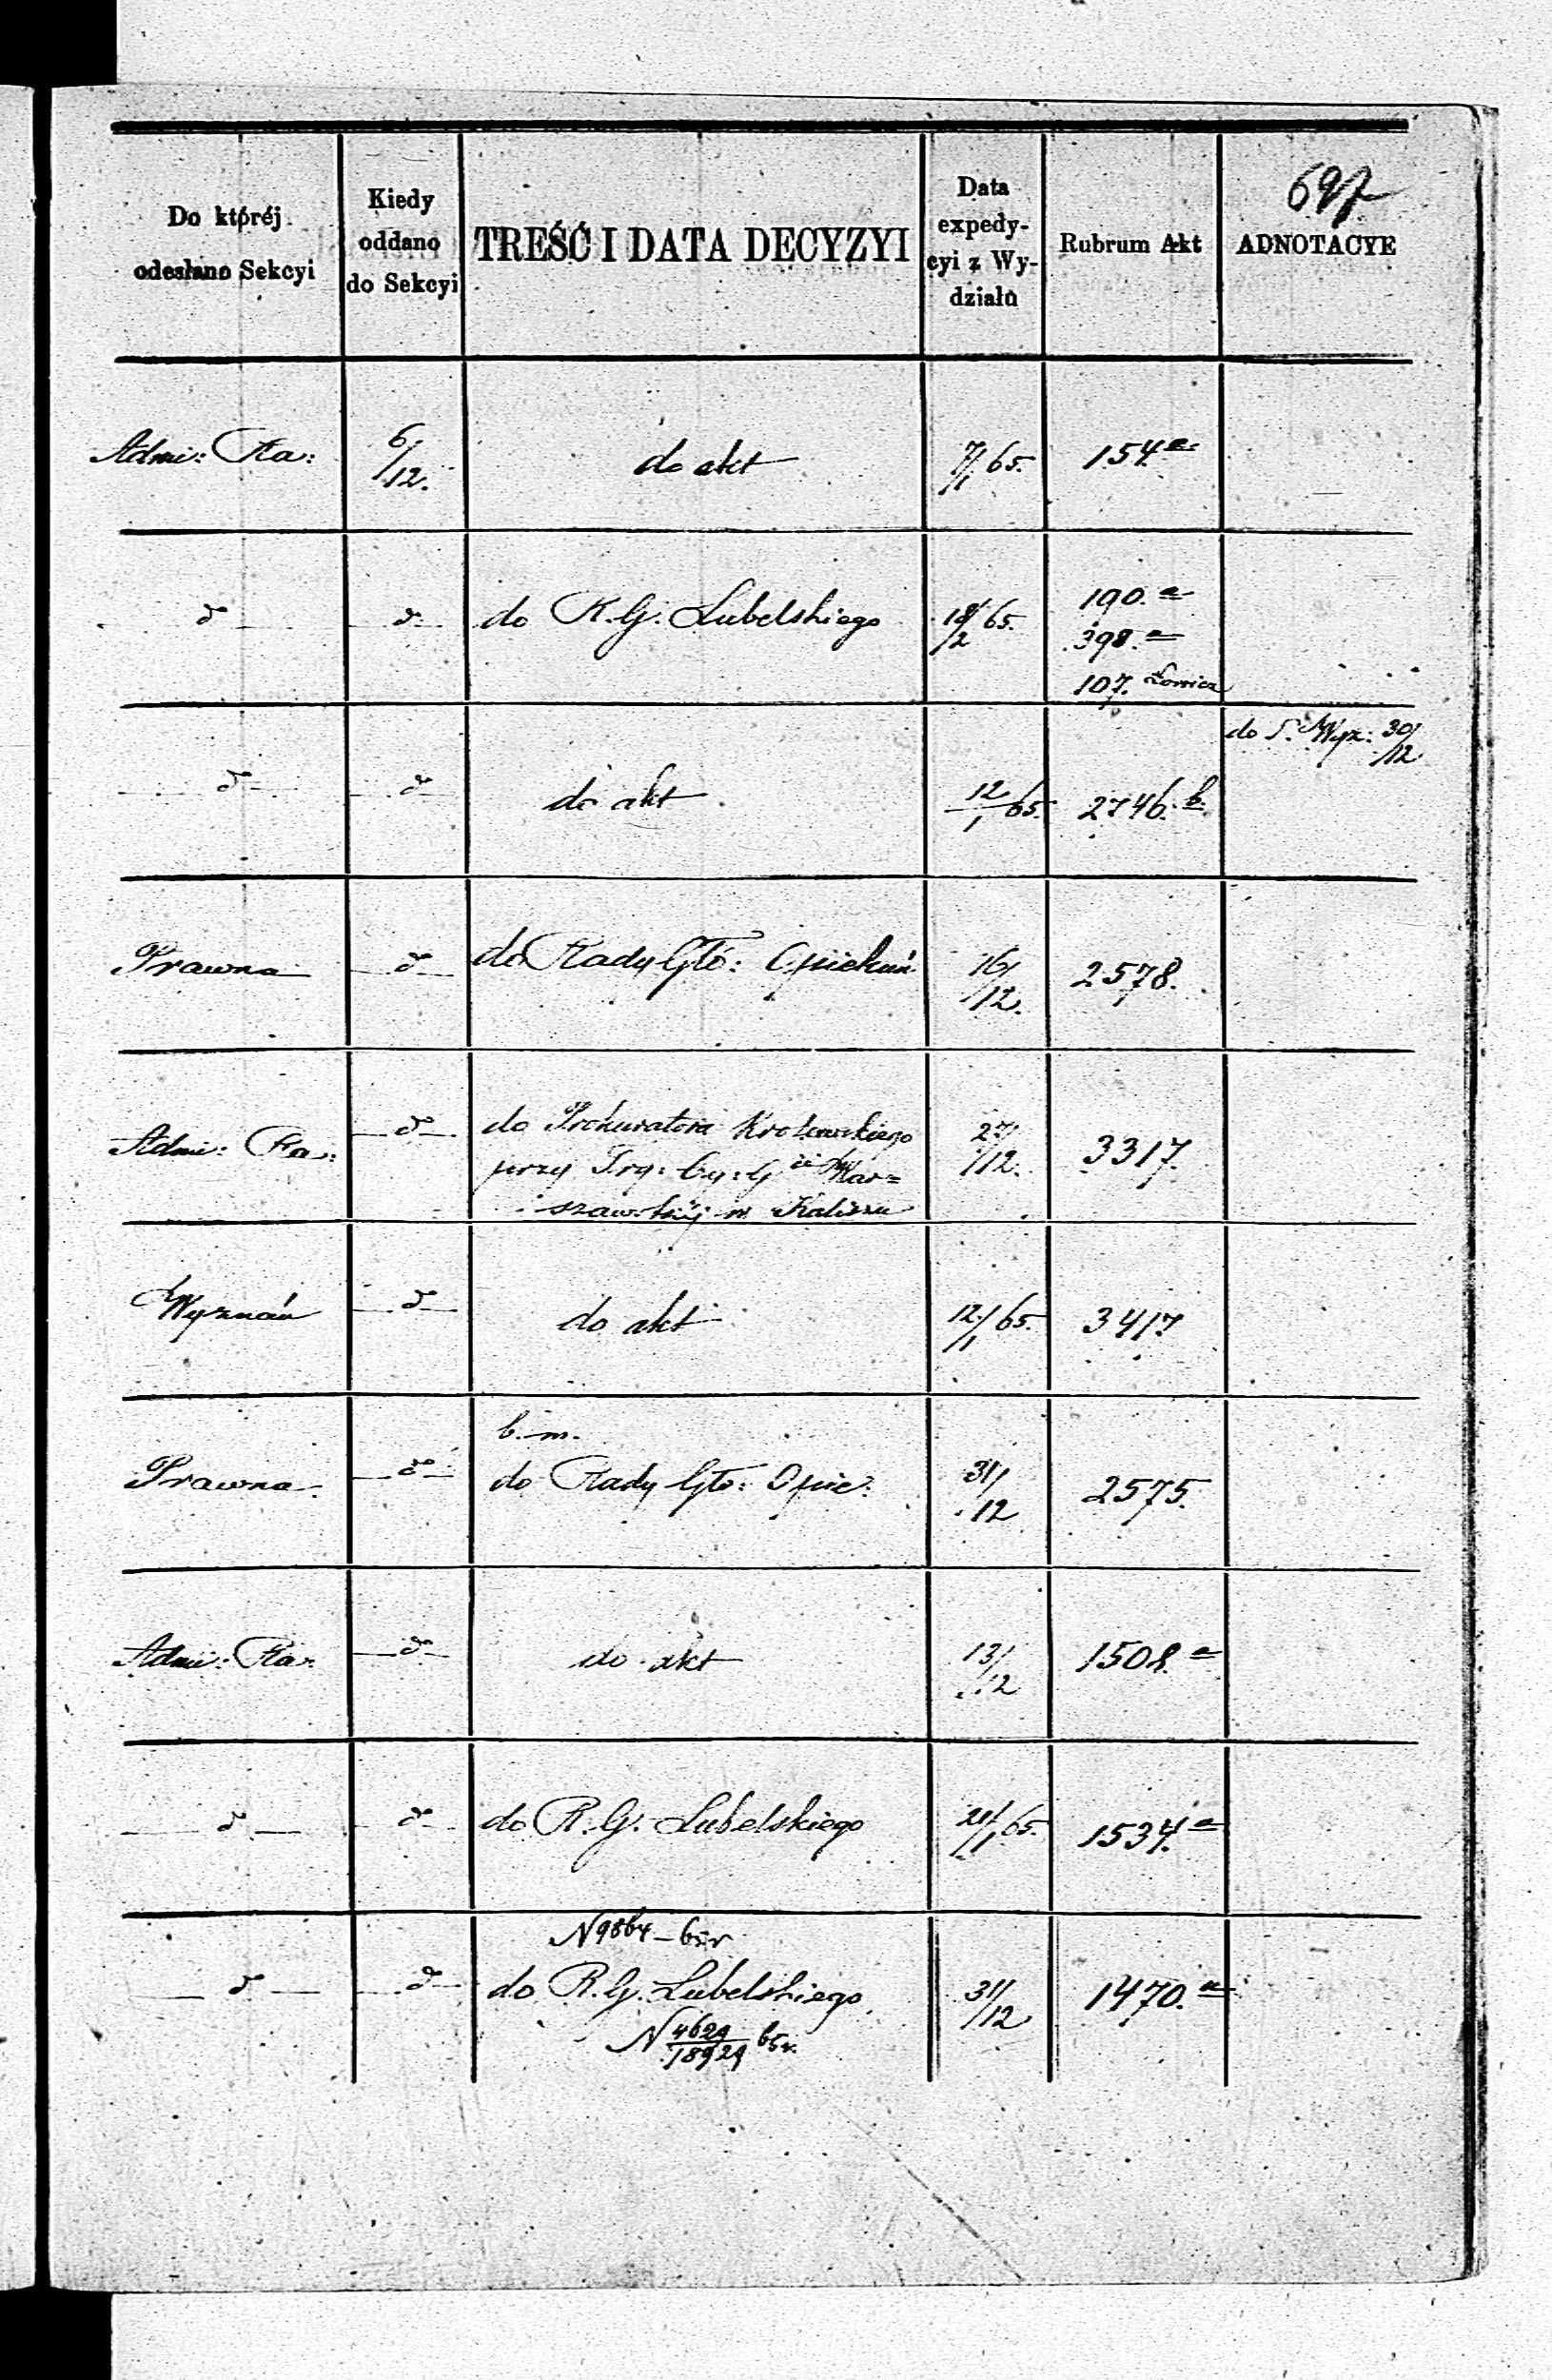 697
Do któréj odesłano Sekcyi | Kiedy oddano do Sekcyi | TREŚĆ I DATA DECYZYI | Data expedycyi z Wydziału | Rubrum Akt | ADNOTACYE
Admi: Ra: | 6/12. | do akt | 7/1 65. | 154.a
d° | d° | do R. G. Lubelskiego | 18/2 65. | 190.a
398.a
107. Łowicz
d° | d° | do akt | 12/1 65. | 2746.b. | do S. Wyz: 30/12
Prawna | d° | do Rady Głó: Opiekuń | 16/12. | 2578.
Admi: Ra: | d° | do Prokuratora Królewskiego | 27/12. | 3317.
przy Try: Cy: G ii War=
szawskiéj w Kaliszu
Wyznań | d° | do akt | 12/1 65. | 3417
b. m.
Prawna | d° | do Rady Głó: Opie: | 31/12 | 2575.
Admi: Ra: | d° | do akt | 13/12 | 1508.a
d° | d° | do R. G. Lubelskiego | 21/1 65. | 1534.a
N 9864
d° | d° | do R. G. Lubelskiego | 31/12 | 1470.a
N 4629/18929